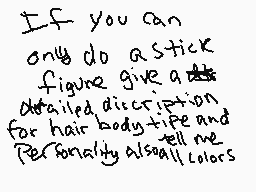 If you can
only do a stick
figure give a
detailed discription
for hair body tipe and
tell me
Personality also all colors